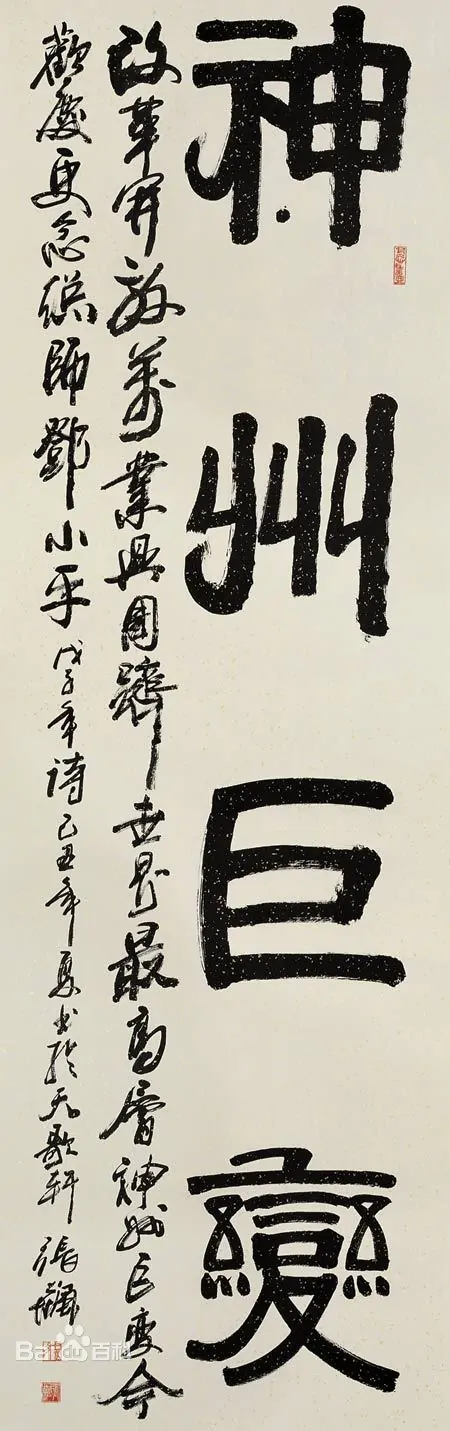 神州巨變
改革開放萬業興國躋世界最高層神州巨變今
歡慶更念總師鄧小平戊子年詩己丑年夏書於天歌軒張飆
Bai百科